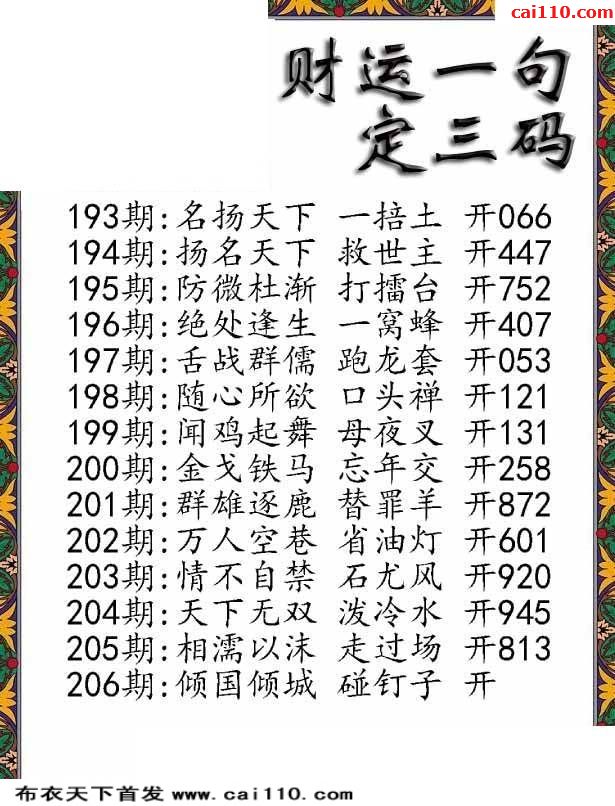 cai110.com
财运一句
定三码
193期:名扬天下 一掊土 开066
194期:扬名天下 救世主 开447
195期:防微杜渐 打擂台 开752
196期:绝处逢生 一窝蜂 开407
197期:舌战群儒 跑龙套 开053
198期:随心所欲 口头禅 开121
199期:闻鸡起舞 母夜叉 开131
200期:金戈铁马 忘年交 开258
201期:群雄逐鹿 替罪羊 开872
202期:万人空巷 省油灯 开601
203期:情不自禁 石尤风 开920
204期:天下无双 泼冷水 开945
205期:相濡以沫 走过场 开813
206期:倾国倾城 碰钉子 开
布衣天下首发 www.cai110.com